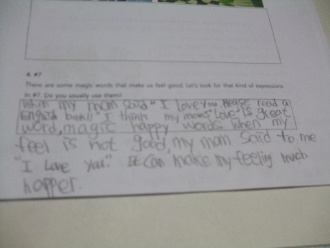 A. #7
There are some magic words that make us feel good. Let's look for that kind of expressions
in #7. Do you usually use them?
When my mom said "I love you, please read a
English book!!" I think my mom's "Love" is great
word, magic happy words when my
feel is not good, my mom said to me
"I Love you." It can make my feeling much
happer.